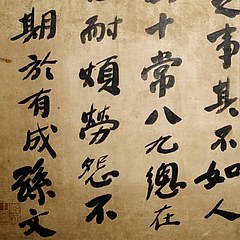 之事其不如人
十常八九總在
耐煩勞怨不
期於有成孫文